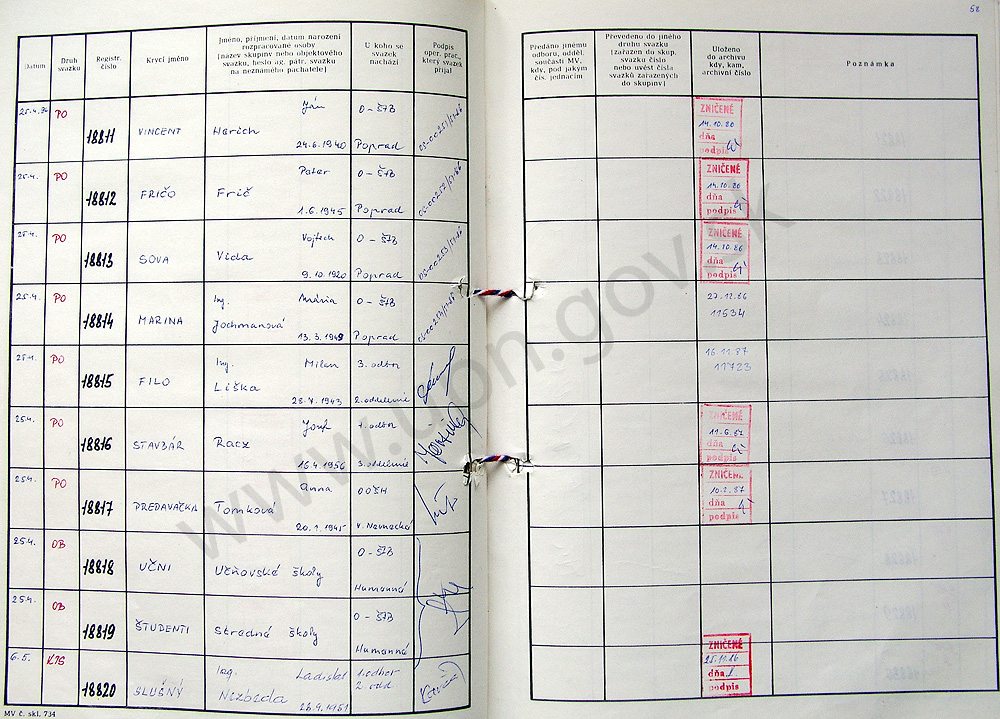 58
Datum
Druh svazku
Registr. číslo
Krycí jméno
Jméno, příjmení, datum narození
rozpracované osoby
(název skupiny nebo objektového
svazku, heslo ag. pátr. svazku
na neznámého pachatele)
U koho se
svazek
nachází
Podpis
oper. prac.,
který svazek
přijal
Předáno jinému
odboru, odděl.
součásti MV,
kdy, pod jakým
čís. jednacím
Převedeno do jiného
druhu svazku
(zařazen do skup.
svazku číslo
nebo uvést čísla
svazků zařazených
do skupiny)
Uloženo
do archivu
kdy, kam,
archivní číslo
Poznámka
25.4. PO 18811 VINCENT Ján Harich 24.6.1940 O-ŠtB Poprad
ZNIČENÉ
14.10.86
dňa
podpis
25.4. PO 18812 FRIČO Peter Frič 1.6.1945 O-ŠtB Poprad
ZNIČENÉ
14.10.86
dňa
podpis
25.4. PO 18813 SOVA Vojtech Vida 9.10.1920 O-ŠtB Poprad
ZNIČENÉ
14.10.86
dňa
podpis
25.4. PO 18814 MARINA Ing. Mária Jochmanová 13.3.1949 O-ŠtB Poprad
27.12.86
11634
25.4. PO 18815 FILO Ing. Milan Liška 3. odbor 2. oddelenie
16.11.87
11723
25.4. PO 18816 STAVBÁR Jozef Racz 16.4.1956 1. odbor 3. oddelenie
ZNIČENÉ
dňa
podpis
25.4. PO 18817 PREDAVAČKA Anna Tomková 20.1.1945 OOŠH
ZNIČENÉ
dňa
podpis
25.4. OB 18818 UČNI Učňovské školy O-ŠtB Humenné
25.4. OB 18819 ŠTUDENTI Stredné školy O-ŠtB Humenné
6.5. KTS 18820 SLUŠNÝ Ing. Ladislav Nezbeda 1. odbor 2. odd.
ZNIČENÉ
25.11.86
dňa
podpis
MV č. skl. 734
www.upn.gov.sk